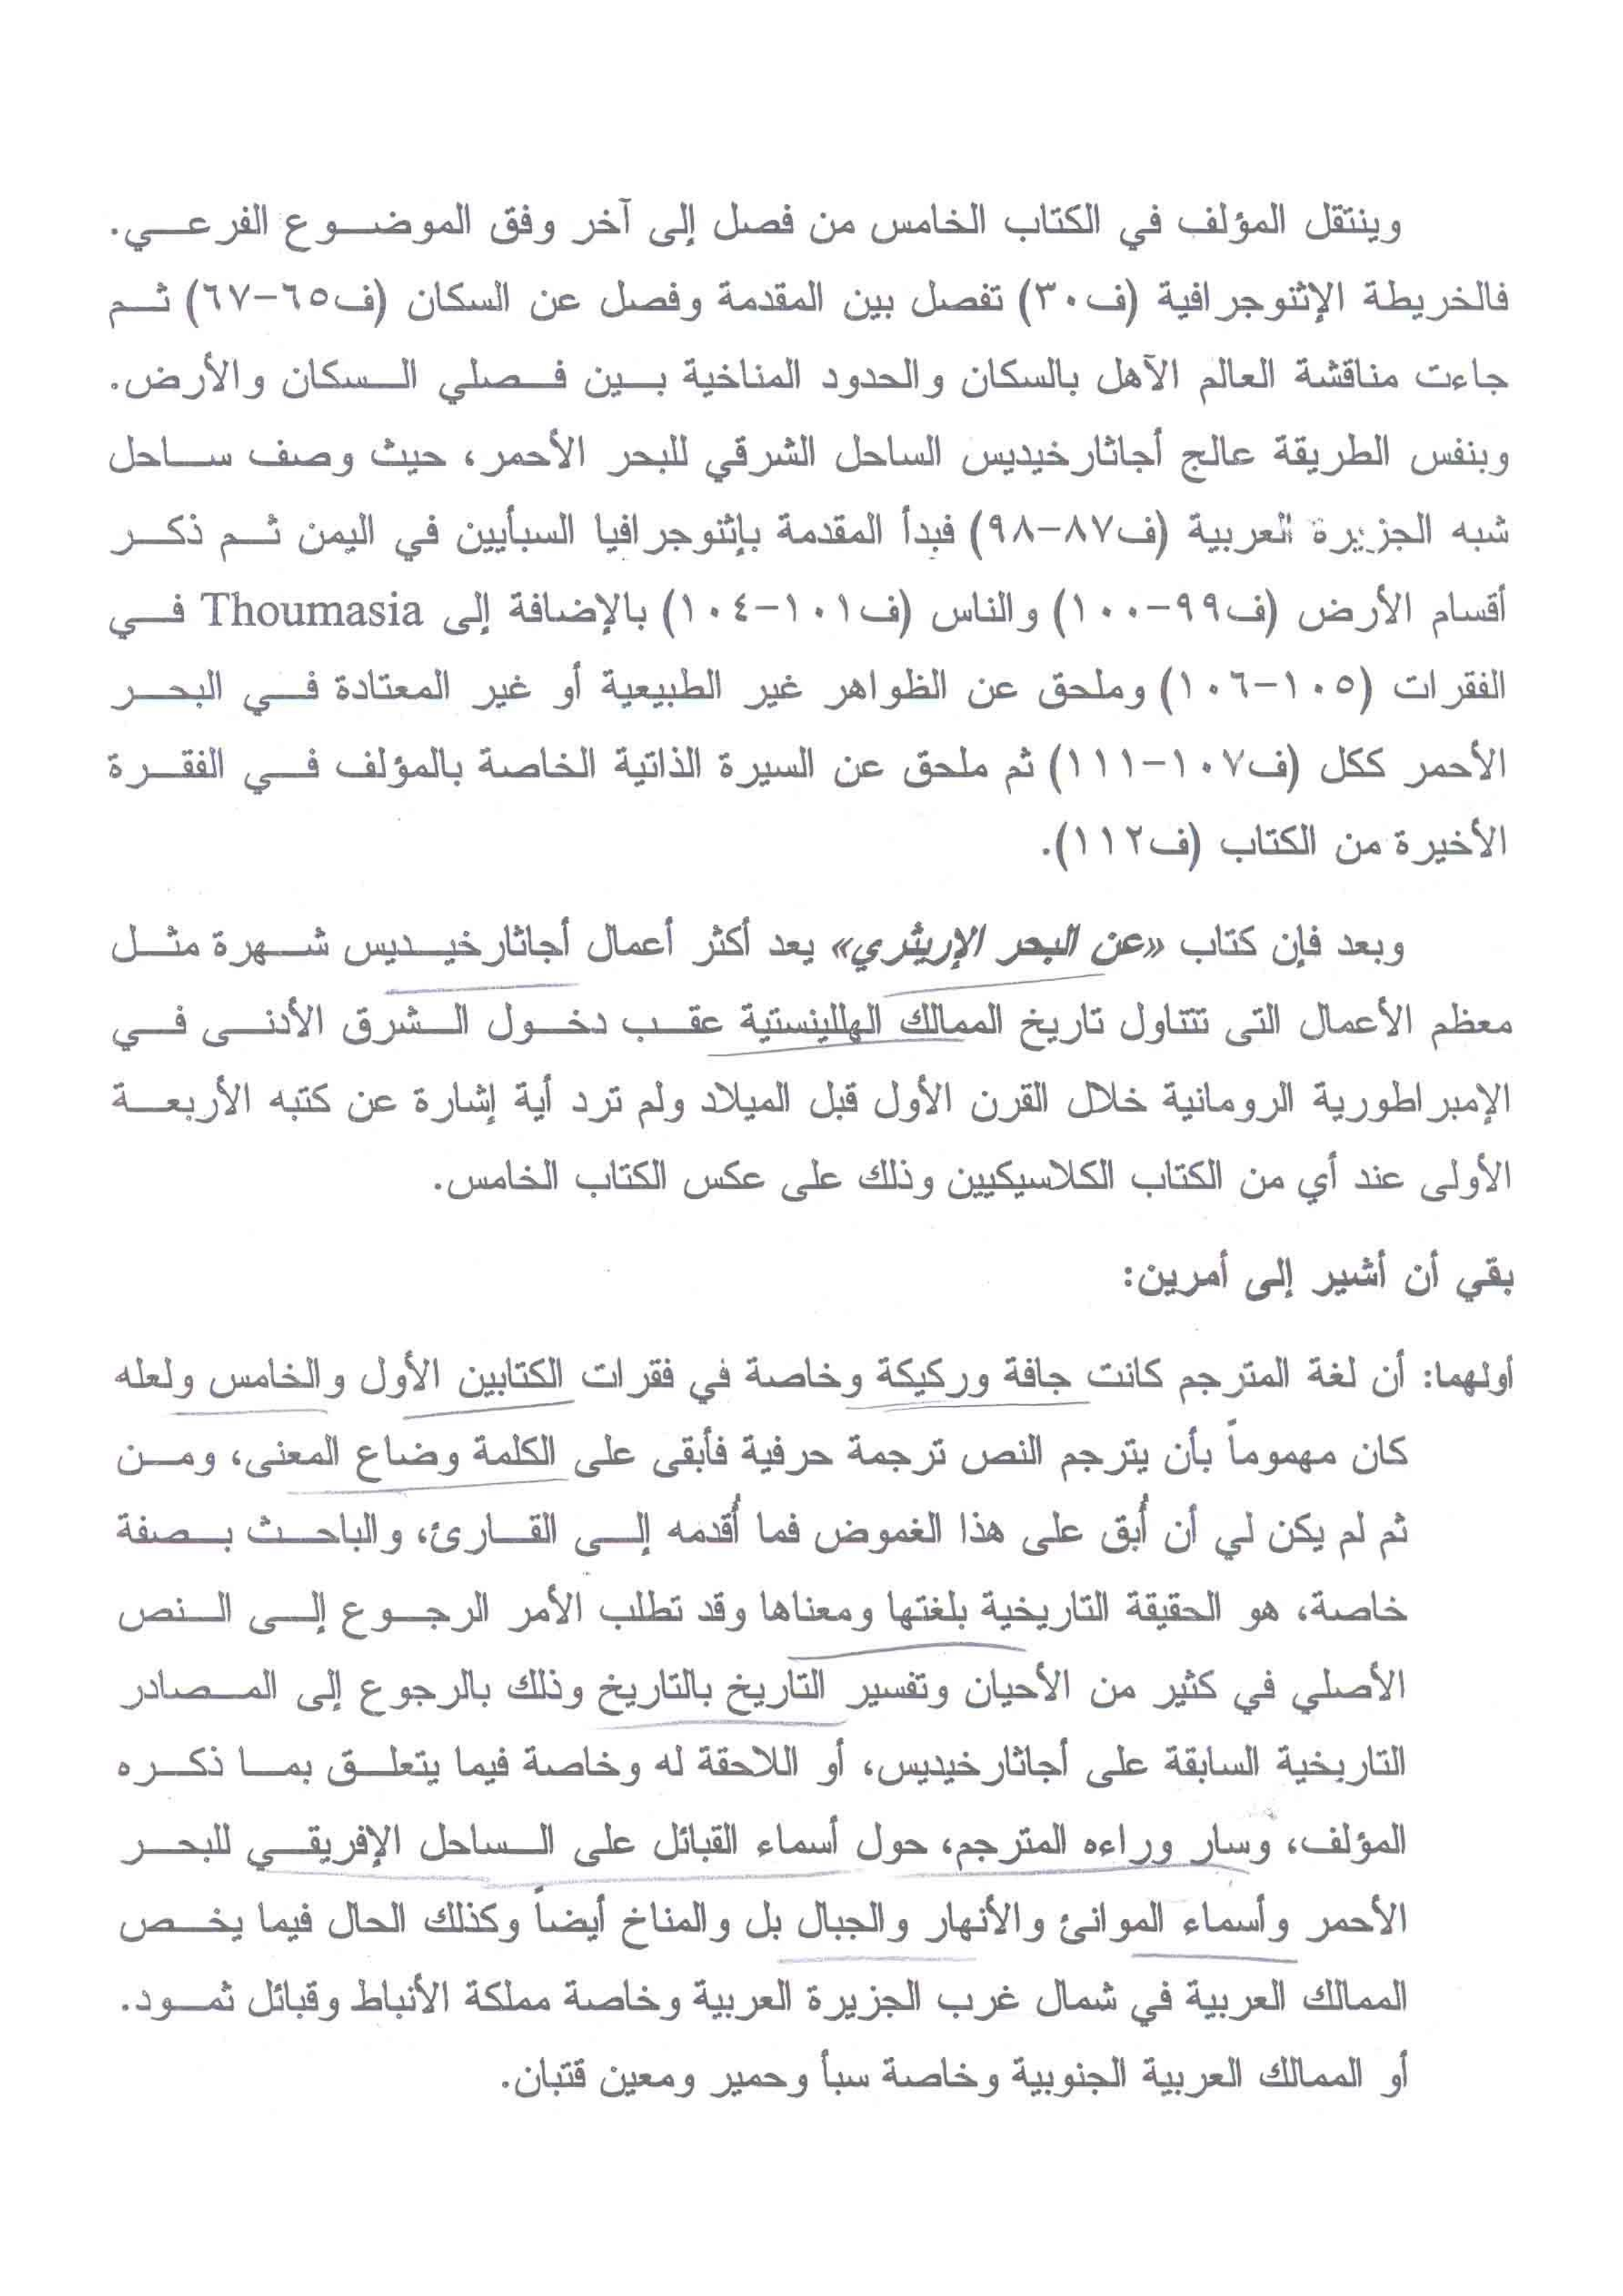 وينتقل المؤلف في الكتاب الخامس من فصل إلى آخر وفق الموضوع الفرعي.
فالخريطة الإثنوجرافية (ف٣٠) تفصل بين المقدمة وفصل عن السكان (ف٦٥-٦٧) ثم
جاءت مناقشة العالم الآهل بالسكان والحدود المناخية بين فصلي السكان والأرض.
وبنفس الطريقة عالج أجاثارخيديس الساحل الشرقي للبحر الأحمر، حيث وصف ساحل
شبه الجزيرة العربية (ف٨٧-٩٨) فبدأ المقدمة بإثنوجرافيا السبأيين في اليمن ثم ذكر
أقسام الأرض (ف٩٩-١٠٠) والناس (ف١٠١-١٠٤) بالإضافة إلى Thoumasia في
الفقرات (١٠٥-١٠٦) وملحق عن الظواهر غير الطبيعية أو غير المعتادة في البحر
الأحمر ككل (ف١٠٧-١١١) ثم ملحق عن السيرة الذاتية الخاصة بالمؤلف في الفقرة
الأخيرة من الكتاب (ف١١٢).
وبعد فإن كتاب «عن البحر الإريثري» يعد أكثر أعمال أجاثارخيديس شهرة مثل
معظم الأعمال التى تتناول تاريخ الممالك الهللينستية عقب دخول الشرق الأدنى في
الإمبراطورية الرومانية خلال القرن الأول قبل الميلاد ولم ترد أية إشارة عن كتبه الأربعة
الأولى عند أي من الكتاب الكلاسيكيين وذلك على عكس الكتاب الخامس.
بقي أن أشير إلى أمرين:
أولهما: أن لغة المترجم كانت جافة وركيكة وخاصة في فقرات الكتابين الأول والخامس ولعله
كان مهموماً بأن يترجم النص ترجمة حرفية فأبقى على الكلمة وضاع المعنى، ومن
ثم لم يكن لي أن أُبق على هذا الغموض فما أُقدمه إلى القارئ، والباحث بصفة
خاصة، هو الحقيقة التاريخية بلغتها ومعناها وقد تطلب الأمر الرجوع إلى النص
الأصلي في كثير من الأحيان وتفسير التاريخ بالتاريخ وذلك بالرجوع إلى المصادر
التاريخية السابقة على أجاثارخيديس، أو اللاحقة له وخاصة فيما يتعلق بما ذكره
المؤلف، وسار وراءه المترجم، حول أسماء القبائل على الساحل الإفريقي للبحر
الأحمر وأسماء الموانئ والأنهار والجبال بل والمناخ أيضاً وكذلك الحال فيما يخص
الممالك العربية في شمال غرب الجزيرة العربية وخاصة مملكة الأنباط وقبائل ثمود.
أو الممالك العربية الجنوبية وخاصة سبأ وحمير ومعين قتبان.